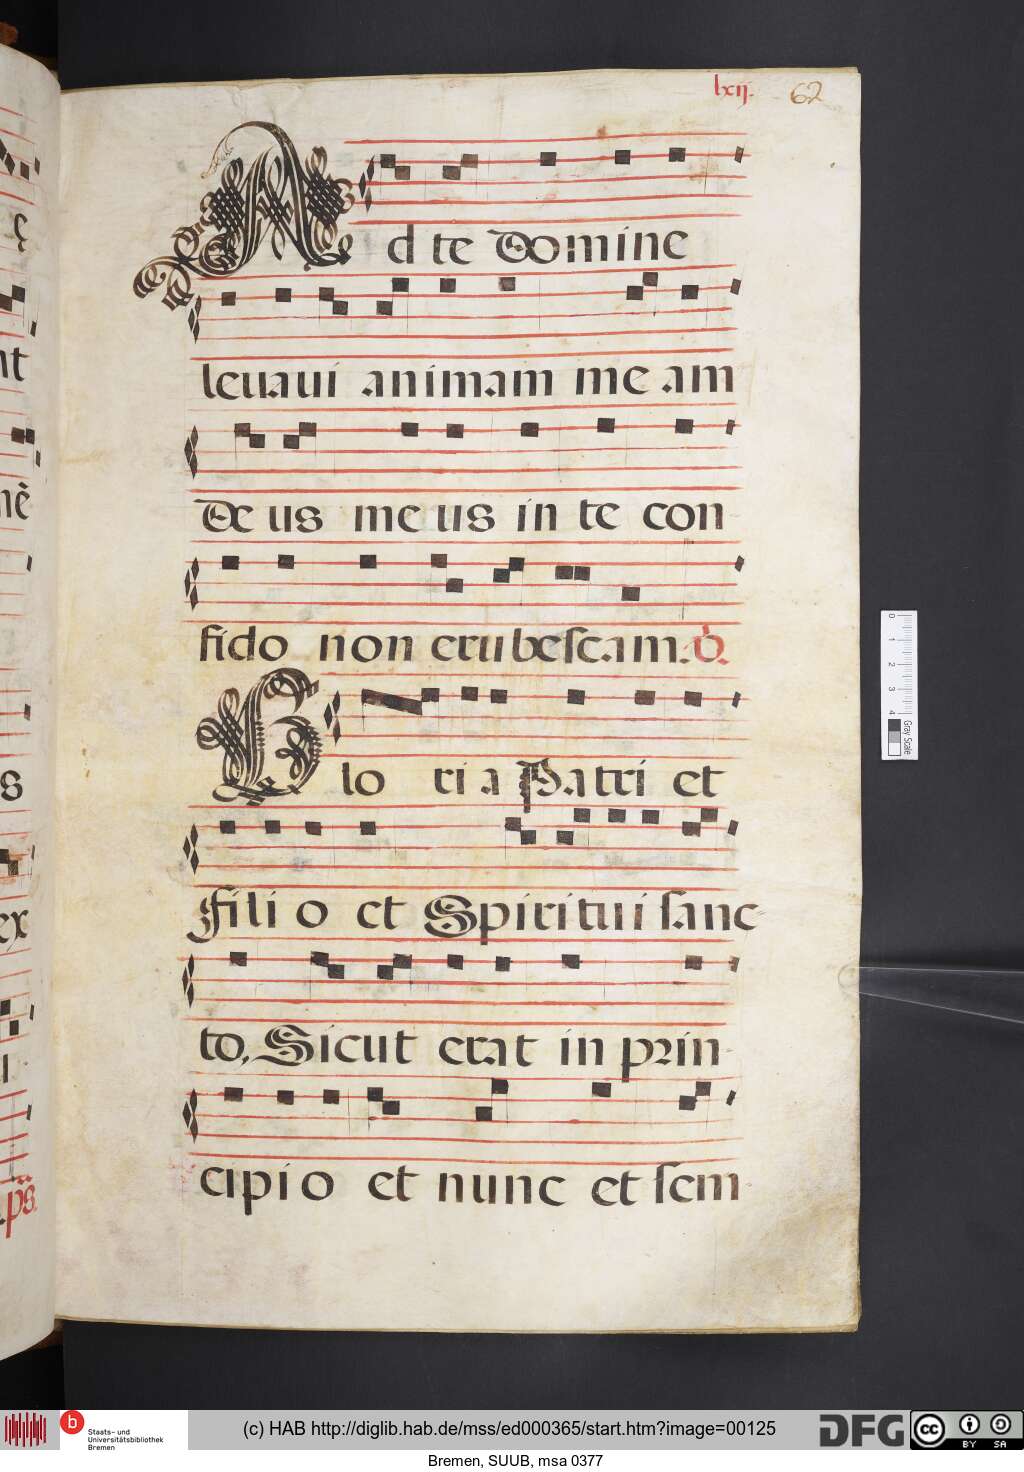 lxij. 62
Ad te Domine
leuaui animam me am
De us me us in te con
fido non erubescam.
Glo ri a Patri et
Fili o et Spiritui sanc
to, Sicut erat in prin
cipi o et nunc et sem
ę
nt
s
ex
l
ps.
0 1 2 3 4
Gray Scale
b Staats- und
Universitätsbibliothek
Bremen
(c) HAB http://diglib.hab.de/mss/ed000365/start.htm?image=00125
DFG
cc BY SA
Bremen, SUUB, msa 0377